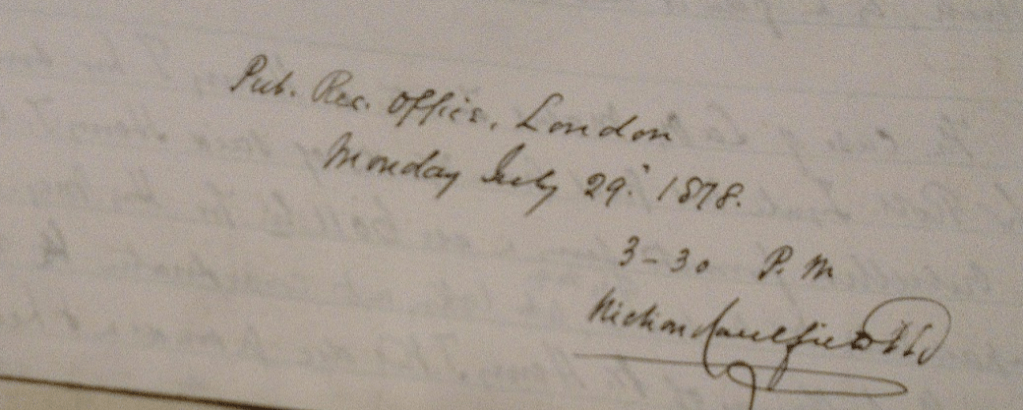 Pub. Rec. Office, London
Monday July 29. 1878.
3-30 P. M
Richard Caulfield LLD